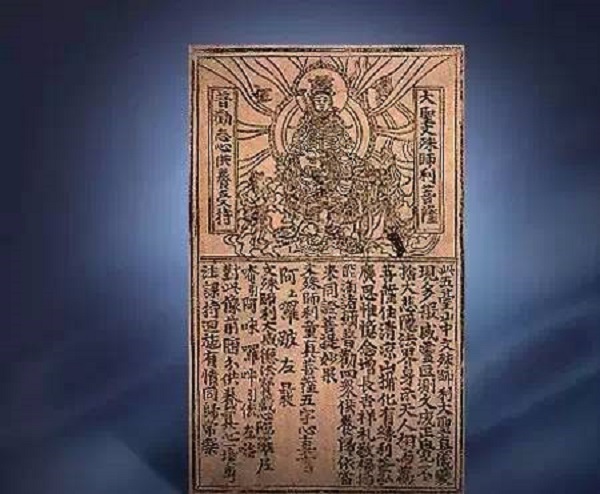 大聖文殊師利菩薩
普勸志心供養受持
此五臺山中文殊師利大聖真儀變
現多般威靈叵測久成正覺不
捨大悲隱法界身示天人相與萬
菩薩住清涼山攝化有緣利益弘
廣思惟憶念增長吉祥禮敬稱揚
能滿諸願普勸四眾供養歸依當
來同證菩提妙果
文殊師利童真菩薩五字心真言
阿上囉跛左曩
文殊師利大威德法寶藏心陀羅尼
唵引阿味囉吽引佉左洛
對此像前隨分供養冀心專
注課持迴施有情同歸常樂